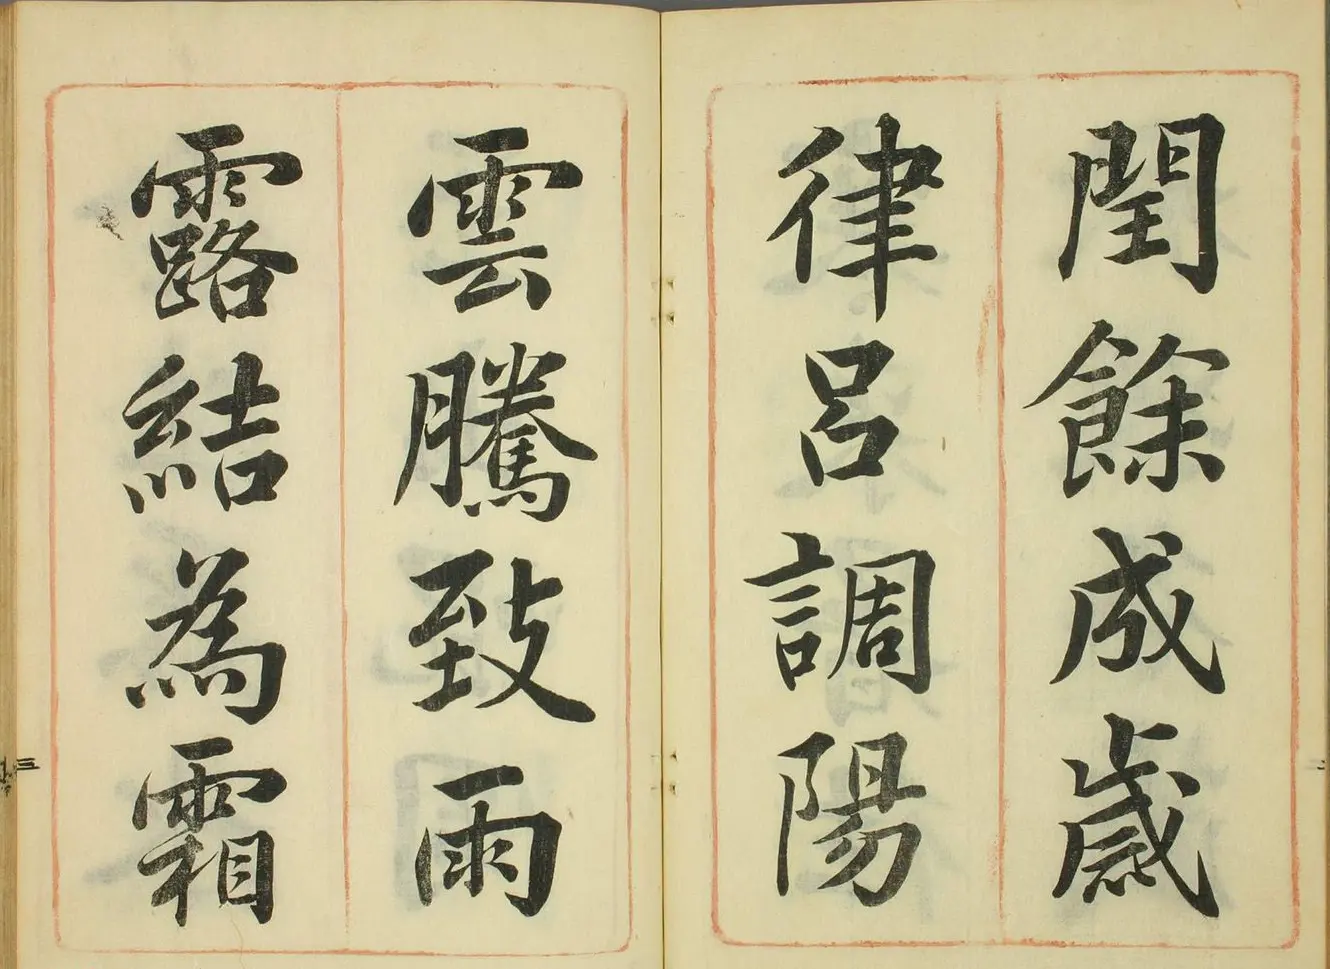 閏餘成歳
律呂調陽
雲騰致雨
露結為霜
三